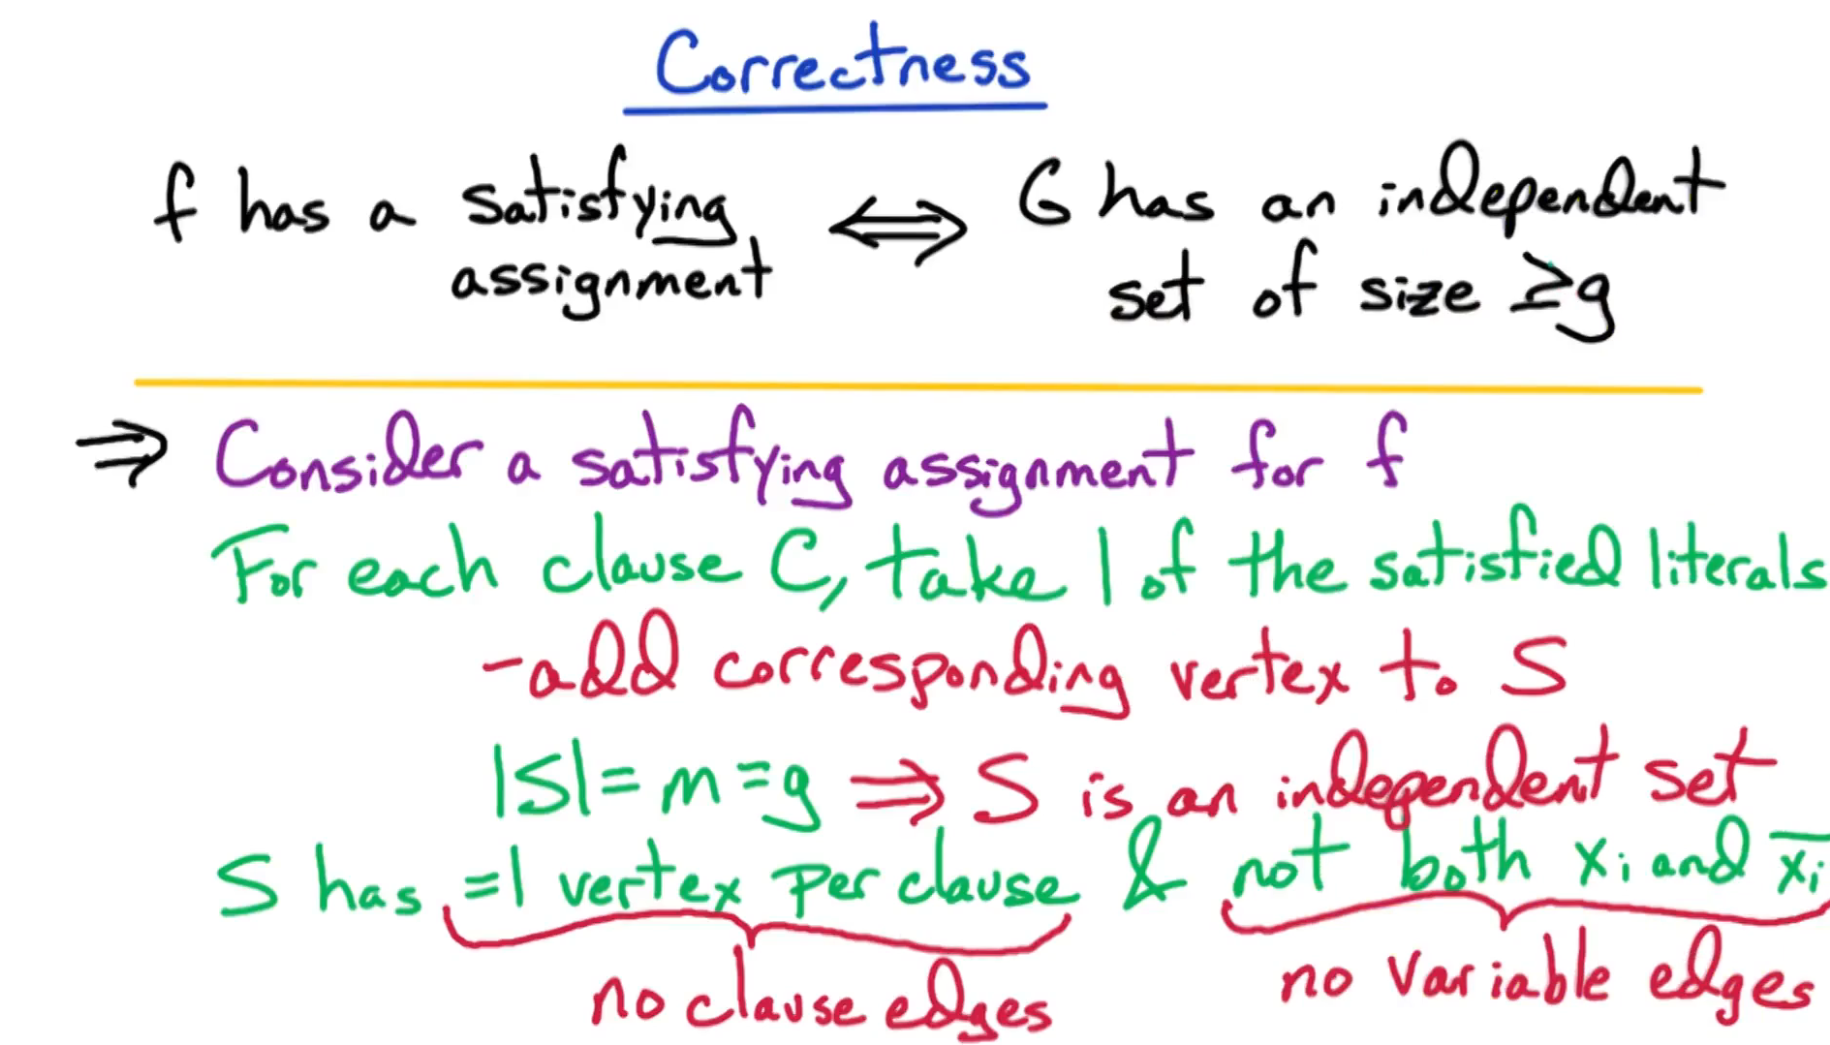 Correctness
f has a satisfying ⟺ G has an independent
assignment set of size ≥g
⇒ Consider a satisfying assignment for f
For each clause C, take 1 of the satisfied literals
-add corresponding vertex to S
|S|= m =g ⇒ S is an independent set
S has =1 vertex per clause & not both xᵢ and x̅ᵢ
no clause edges no variable edges